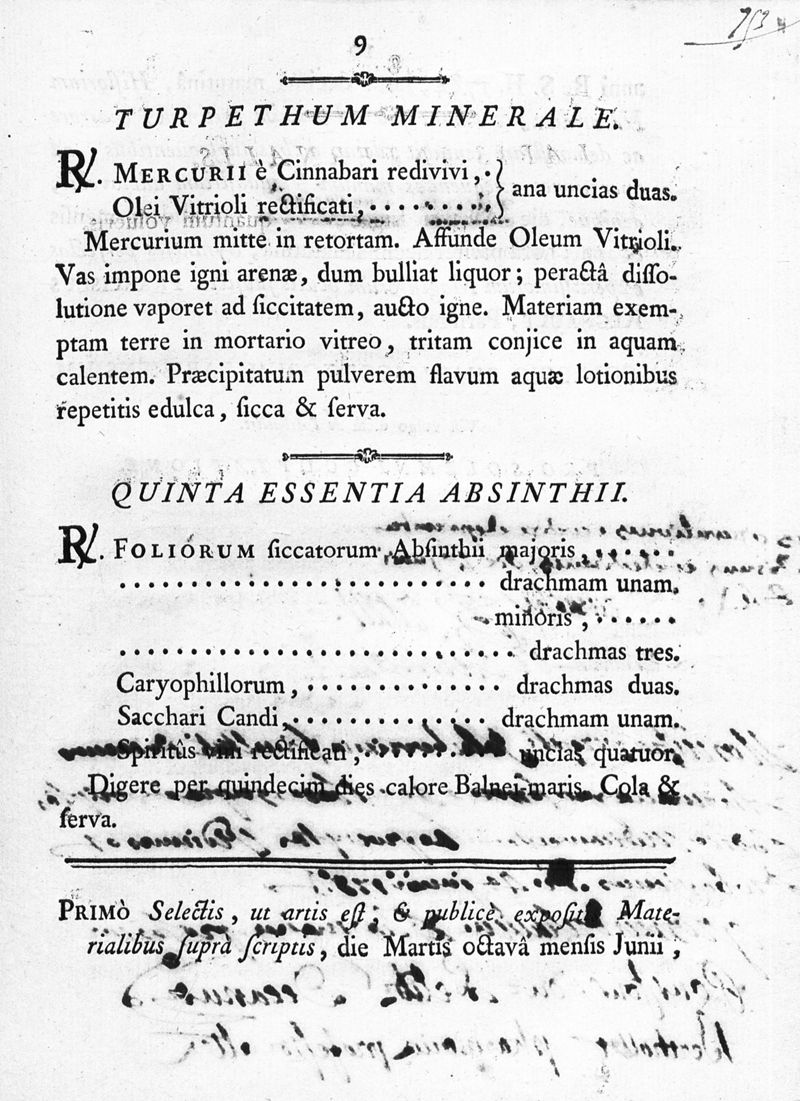 9
TURPETHUM MINERALE.
℞. MERCURII è Cinnabari redivivi, . } ana uncias duas.
Olei Vitrioli rectificati, . . . . . . . . . .
Mercurium mitte in retortam. Affunde Oleum Vitrioli.
Vas impone igni arenæ, dum bulliat liquor; peractâ disso-
lutione vaporet ad siccitatem, aucto igne. Materiam exem-
ptam terre in mortario vitreo, tritam conjice in aquam
calentem. Præcipitatum pulverem flavum aquæ lotionibus
repetitis edulca, sicca & serva.
QUINTA ESSENTIA ABSINTHII.
℞. FOLIORUM siccatorum Absinthii majoris, . . . . . .
. . . . . . . . . . . . . . . . . . . . . . . . . . . drachmam unam.
minoris, . . . . . .
. . . . . . . . . . . . . . . . . . . . . . . . . . . . . drachmas tres.
Caryophillorum, . . . . . . . . . . . . . . . drachmas duas.
Sacchari Candi, . . . . . . . . . . . . . . . drachmam unam.
Spiritûs vini rectificati, . . . . . . . . . . uncias quatuor.
Digere per quindecim dies calore Balnei maris. Cola &
serva.
PRIMÒ Selectis, ut artis est; & publicè expositis Mate-
rialibus suprà scriptis, die Martis octavâ mensis Junii,